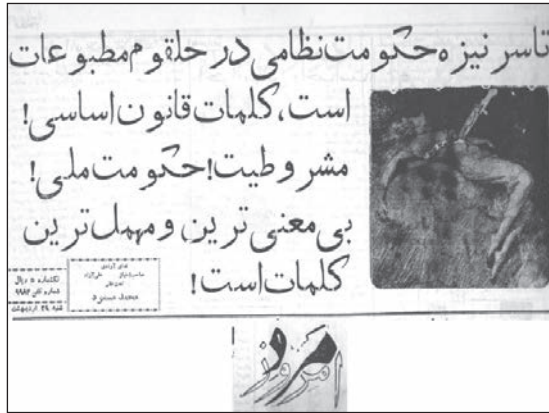 تا سر نیزه حکومت نظامی در حلقوم مطبوعات
است، کلمات قانون اساسی!
مشروطیت! حکومت ملی!
بی معنی ترین و مهمل ترین
کلمات است!
تکشماره ۵ ریال
شماره تلفن ۹۹۸۲
شنبه ۲۹ اردیبهشت
محمد مسعود
امروز